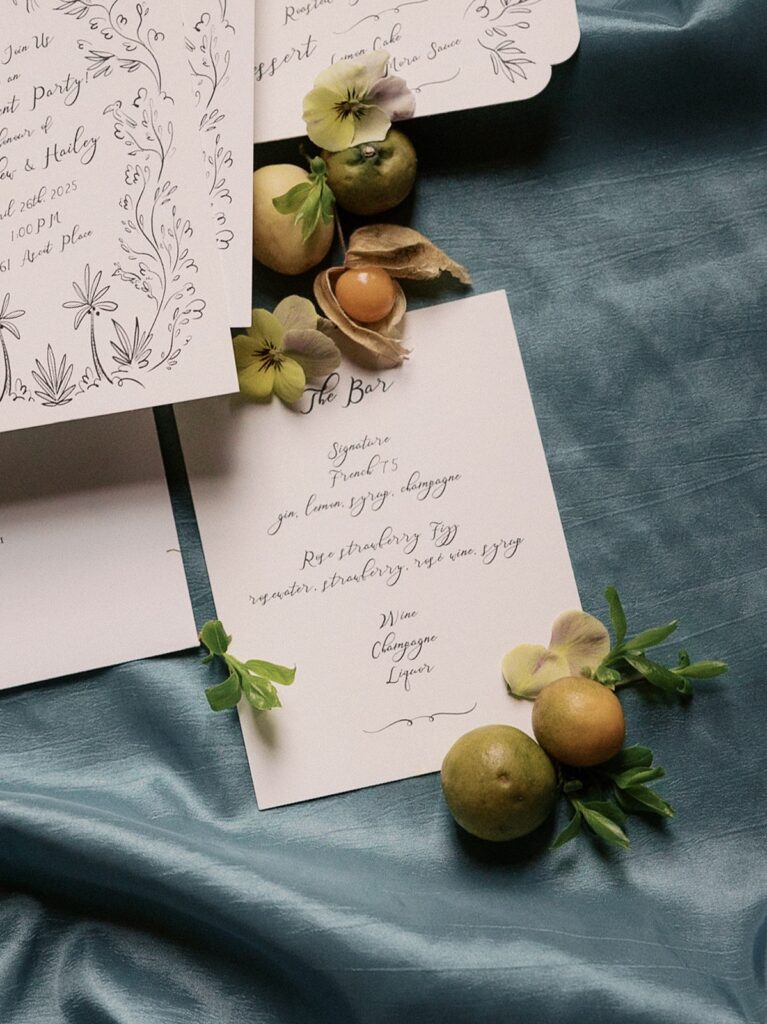 Join Us
an
Party!
of
& Hailey
26th, 2025
1:00 P.M
Ascot Place
Dessert
Cake
Mora Sauce
The Bar
Signature
French 75
gin, lemon, syrup, champagne
Rose strawberry Fizz
rosewater, strawberry, rosé wine, syrup
Wine
Champagne
Liquor